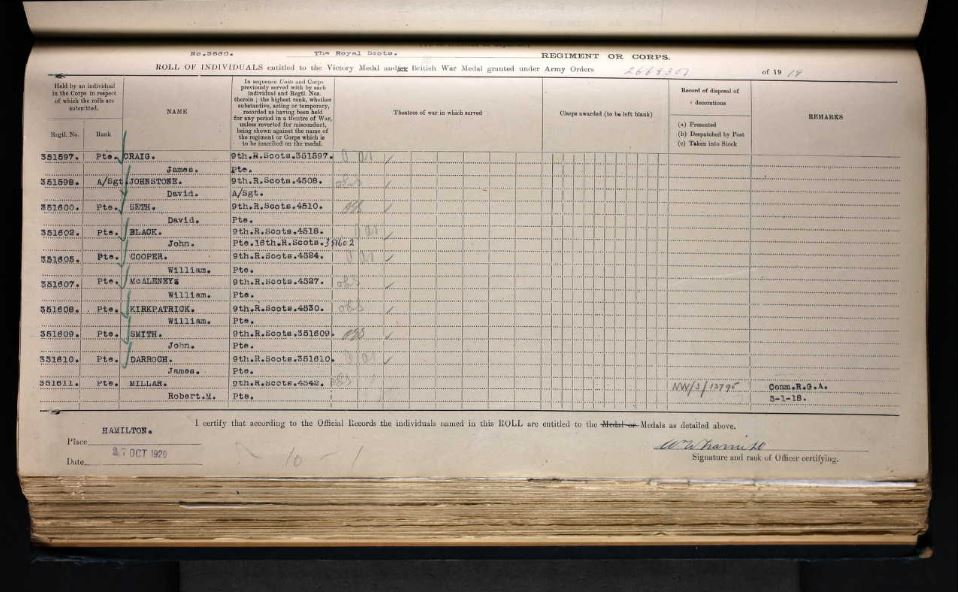 No.3660. The Royal Scots. REGIMENT OR CORPS.
ROLL OF INDIVIDUALS entitled to the Victory Medal and/or British War Medal granted under Army Orders of 1919
Held by an individual in the Corps in respect of which the rolls are submitted.
Regtl. No. Rank
NAME
In sequence Units and Corps
previously served with by each
individual and Regtl. Nos.
therein ; the highest rank, whether
substantive, acting or temporary,
recorded as having been held
for any period in a theatre of War,
unless reverted for misconduct,
being shown against the name of
the regiment or Corps which is
to be inscribed on the medal.
Theatres of war in which served
Clasps awarded (to be left blank)
Record of disposal of
decorations
(a) Presented
(b) Despatched by Post
(c) Taken into Stock
REMARKS
351597. Pte. CRAIG. 9th.R.Scots.351597.
James. Pte.
351598. A/Sgt JOHNSTONE. 9th.R.Scots.4508.
David. A/Sgt.
351600. Pte. SETH. 9th.R.Scots.4510.
David. Pte.
351602. Pte. BLACK. 9th.R.Scots.4518.
John. Pte.16th.R.Scots.351602
351605. Pte. COOPER. 9th.R.Scots.4524.
William. Pte.
351607. Pte. 9th.R.Scots.4527.
William. Pte.
351608. Pte. KIRKPATRICK. 9th.R.Scots.4530.
William. Pte.
351609. Pte. SMITH. 9th.R.Scots.351609.
John. Pte.
351610. Pte. DARROCH. 9th.R.Scots.351610.
James. Pte.
351611. Pte. MILLAR. 9th.R.Scots.4542. NW/3/13795 Comm.R.G.A.
Robert.M. Pte. 3-1-18.
I certify that according to the Official Records the individuals named in this ROLL are entitled to the Medal or Medals as detailed above.
Place HAMILTON.
Date 27 OCT 1920
Signature and rank of Officer certifying.